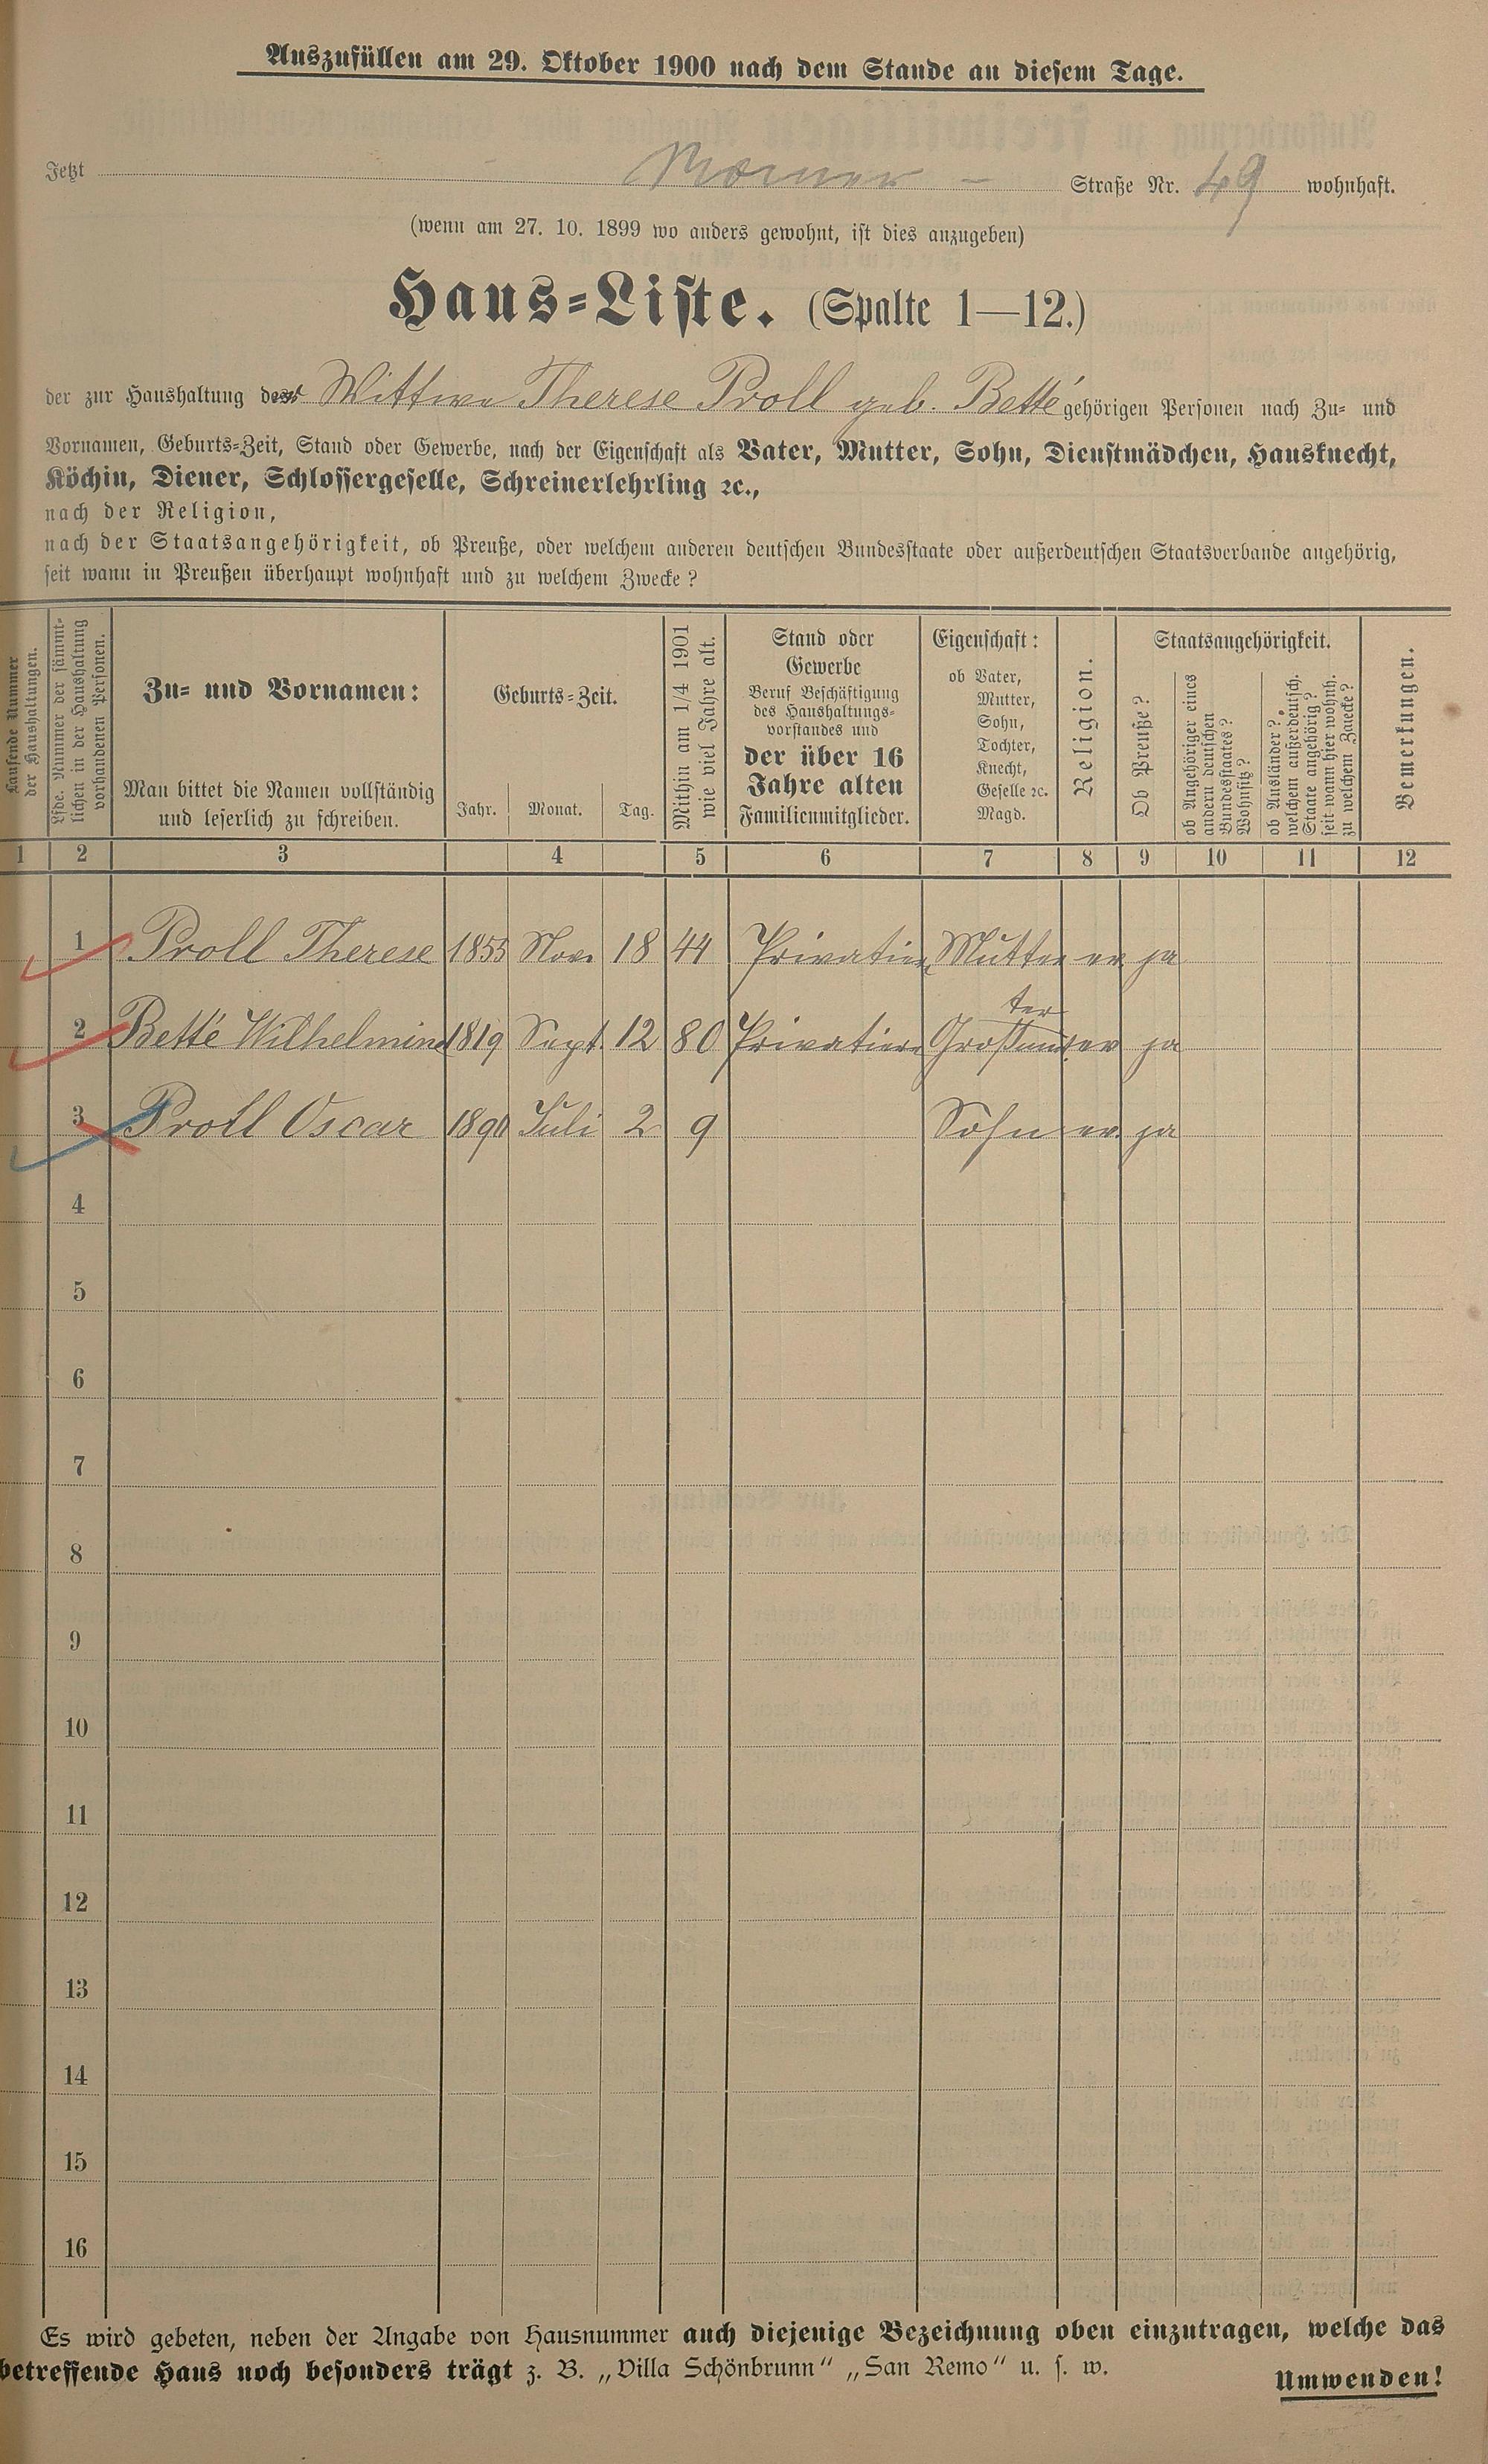 Auszufüllen am 29. Oktober 1900 nach dem Stande an diesem Tage.
Jetzt Straße Nr. 49 wohnhaft.
(wenn am 27. 10. 1899 wo anders gewohnt, ist dies anzugeben)
Haus-Liste. (Spalte 1—12.)
der zur Haushaltung der Wittwe Therese Proll geb. Betté gehörigen Personen nach Zu- und
Vornamen, Geburts-Zeit, Stand oder Gewerbe, nach der Eigenschaft als Vater, Mutter, Sohn, Dienstmädchen, Hausknecht,
Köchin, Diener, Schlossergeselle, Schreinerlehrling ꝛc.,
nach der Religion,
nach der Staatsangehörigkeit, ob Preuße, oder welchem anderen deutschen Bundesstaate oder außerdeutschen Staatsverbande angehörig,
seit wann in Preußen überhaupt wohnhaft und zu welchem Zwecke?
Laufende Nummer
der Haushaltungen.
Lfde. Nummer der sämmt-
lichen in der Haushaltung
vorhandenen Personen.
Zu- und Vornamen:
Man bittet die Namen vollständig
und leserlich zu schreiben.
Geburts-Zeit.
Jahr. Monat. Tag.
Mithin am 1/4 1901
wie viel Jahre alt.
Stand oder
Gewerbe
Beruf Beschäftigung
des Haushaltungs-
vorstandes und
der über 16
Jahre alten
Familienmitglieder.
Eigenschaft:
ob Vater,
Mutter,
Sohn,
Tochter,
Knecht,
Geselle ꝛc.
Magd.
Religion.
Staatsangehörigkeit.
Ob Preuße?
ob Angehöriger eines
andern deutschen
Bundesstaates?
Wohnsitz?
ob Ausländer?
welchem außerdeutsch.
Staate angehörig?
seit wann hier wohnh.
zu welchem Zwecke?
Bemerkungen.
1 2 3 4 5 6 7 8 9 10 11 12
1 Proll Therese 1855 Nov. 18 44 Privatiere Mutter ev. ja
2 Betté Wilhelmine 1819 Sept. 12 80 Privatiere Großmutter ev ja
3 Proll Oscar 1890 Juli 2 9 Sohn ev. ja
4
5
6
7
8
9
10
11
12
13
14
15
16
Es wird gebeten, neben der Angabe von Hausnummer auch diejenige Bezeichnung oben einzutragen, welche das
betreffende Haus noch besonders trägt z. B. „Villa Schönbrunn“ „San Remo“ u. s. w.
Umwenden!